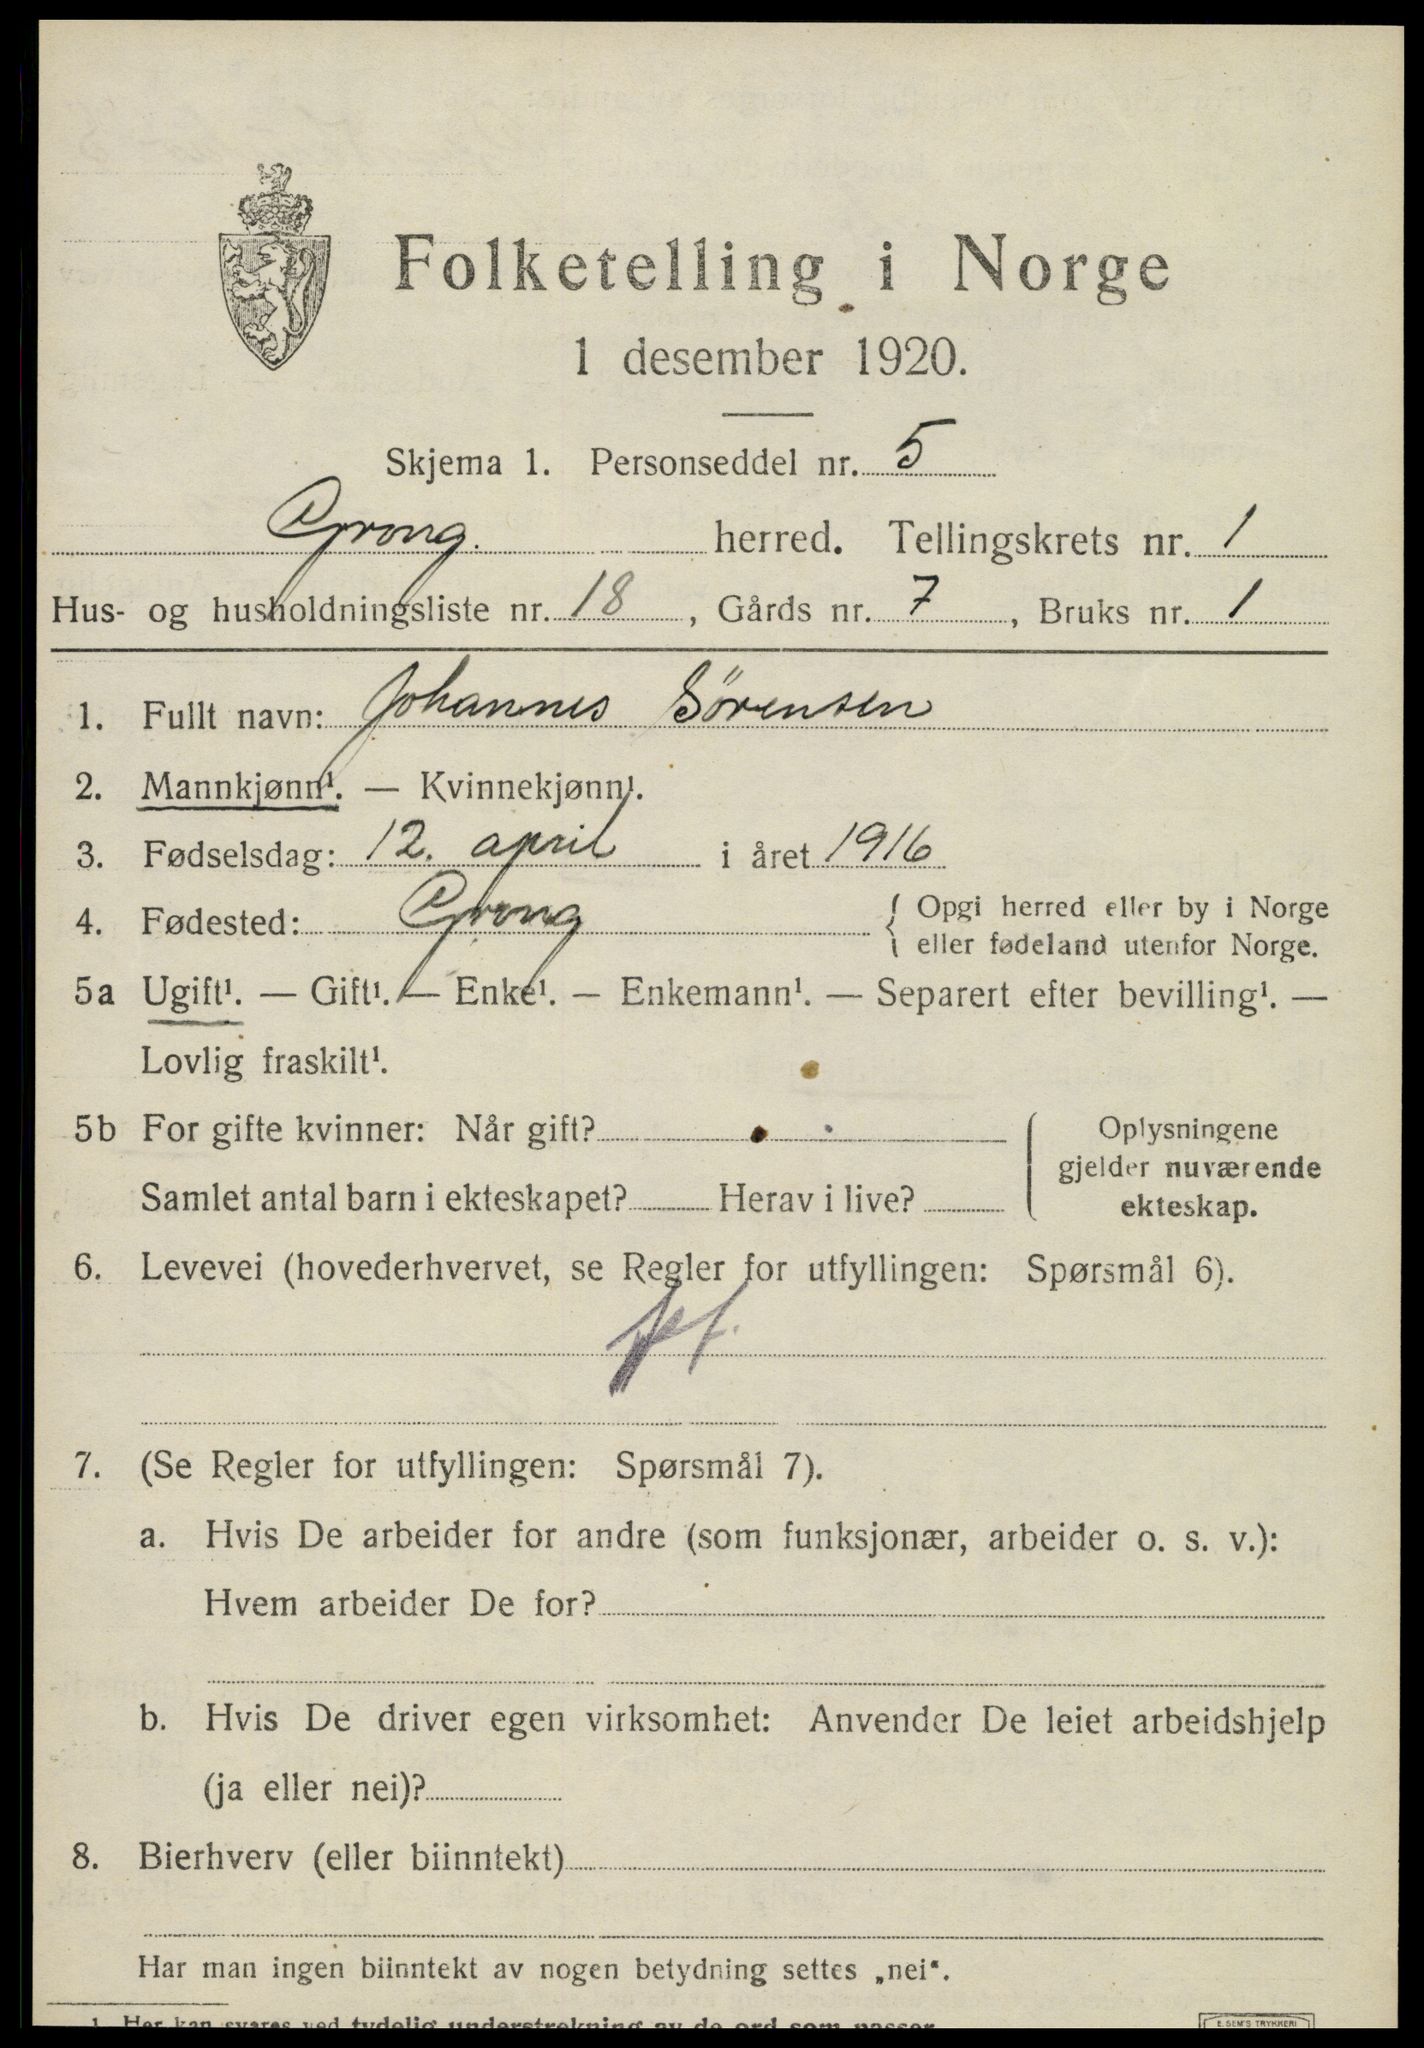 Folketelling i Norge
1 desember 1920.
Skjema 1. Personseddel nr. 5
Grong. herred. Tellingskrets nr. 1
Hus- og husholdningsliste nr. 18, Gårds nr. 7, Bruks nr. 1
1. Fullt navn: Johannes Sörensen
2. Mannkjønn¹. — Kvinnekjønn¹.
3. Fødselsdag: 12. april i året 1916
4. Fødested: Grong { Opgi herred eller by i Norge
eller fødeland utenfor Norge.
5a Ugift¹. — Gift¹. — Enke¹. — Enkemann¹. — Separert efter bevilling¹. —
Lovlig fraskilt¹.
5b For gifte kvinner: Når gift?
Samlet antal barn i ekteskapet? Herav i live?
Oplysningene
gjelder nuværende
ekteskap.
6. Levevei (hovederhvervet, se Regler for utfyllingen: Spørsmål 6).
7. (Se Regler for utfyllingen: Spørsmål 7).
a. Hvis De arbeider for andre (som funksjonær, arbeider o. s. v.):
Hvem arbeider De for?
b. Hvis De driver egen virksomhet: Anvender De leiet arbeidshjelp
(ja eller nei)?
8. Bierhverv (eller biinntekt)
Har man ingen biinntekt av nogen betydning settes „nei“.
1 Her kan svares ved tydelig understrekning av de ord som passer.
E. SEM'S TRYKKERI